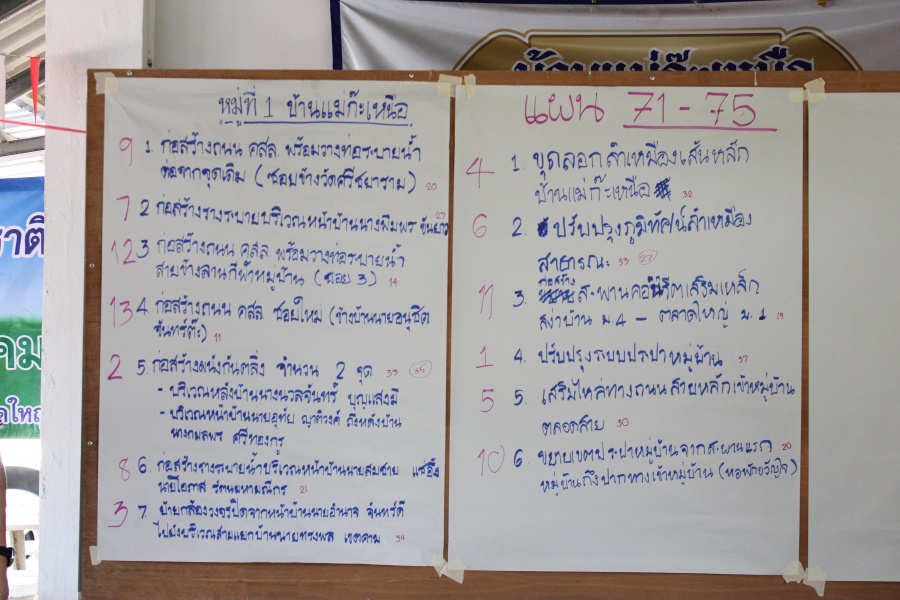 บ้านแม่ก๊ะเหนือ
หมู่ที่ 1 บ้านแม่ก๊ะเหนือ
9 1. ก่อสร้างถนน คสล. พร้อมวางท่อระบายน้ำ
ต่อจากจุดเดิม (ซอยข้างวัดศรีชยาราม) 20
7 2 ก่อสร้างรางระบายบริเวณหน้าบ้านนางพิมพร 27
12 3 ก่อสร้างถนน คสล. พร้อมวางท่อระบายน้ำ
สายข้างลานกีฬาหมู่บ้าน (ซอย 3) 14
13 4. ก่อสร้างถนน คสล. ซอยใหม่ (ข้างบ้านนายอนุชิต
จันทร์ต๊ะ) 11
2 5. ก่อสร้างผนังกันตลิ่ง จำนวน 2 จุด 39 35
- บริเวณหลังบ้านนางนวลจันทร์ บุญแสงมี
- บริเวณหน้าบ้านนายอุทัย ญาติวงค์ ถึงหลังบ้าน
นางกมลพร ศรีทองกรู
8 6. ก่อสร้างรางระบายน้ำบริเวณหน้าบ้านนายสมชาย
นายโอภาส รัตนมหามณีกร 21
3 7. ย้ายกล้องวงจรปิดจากหน้าบ้านนายอำนาจ จันทร์ดี
ไปยังบริเวณสามแยกบ้านนายทรงพล เจตคาม 34
แผน 71 - 75
4 1. ขุดลอกลำเหมืองเส้นหลัก
บ้านแม่ก๊ะเหนือ 32
6 2. ปรับปรุงภูมิทัศน์ลำเหมือง
สาธารณะ 39 27
ก่อสร้าง
11 3. สะพานคอนกรีตเสริมเหล็ก
สง่าบ้าน ม.4 - ตลาดใหญ่ ม.1 19
1 4. ปรับปรุงระบบประปาหมู่บ้าน 37
5 5. เสริมไหล่ทางถนนสายหลักเข้าหมู่บ้าน
ตลอดสาย 30
10 6 ขยายเขตประปาหมู่บ้านจากสะพานแรก 20
หมู่บ้านถึงปากทางเข้าหมู่บ้าน (หอพักขวัญใจ)